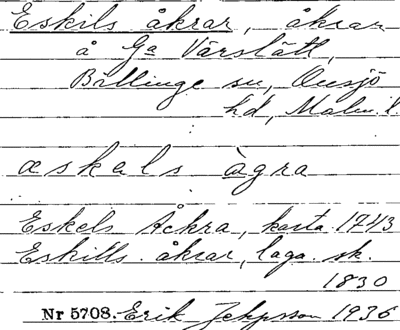 Eskils åkrar, åkrar
å Ga Värslätt,
Billinge sn, Onsjö
hd, Malm. l.
æskals ågra
Eskels Åckra, karta 1743
Eskills åkrar, laga sk.
1830
Nr 5708. Erik Jeppsson 1936